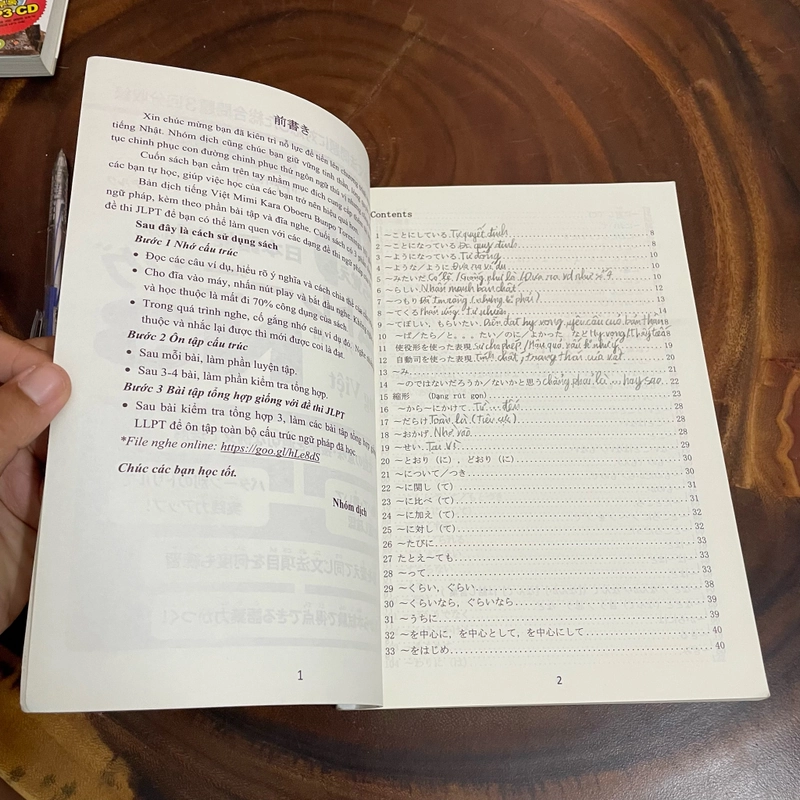 P3 CD
前書き
Xin chúc mừng bạn đã kiên trì nỗ lực để tiến lên
tiếng Nhật. Nhóm dịch cũng chúc bạn giữ vững tinh thần,
tục chinh phục con đường chinh phục thứ ngôn ngữ thú vị
Cuốn sách bạn cầm trên tay nhằm mục đích cung cấp
các bạn tự học, giúp việc học của các bạn trở nên hiệu quả hơn.
Bản dịch tiếng Việt Mimi Kara Oboeru Bunpo Toreningu
ngữ pháp, kèm theo phần bài tập và đĩa nghe. Cuối sách có
đề thi JLPT để bạn có thể làm quen với các dạng đề thi ngữ pháp
Sau đây là cách sử dụng sách
Bước 1 Nhớ cấu trúc
• Đọc các câu ví dụ, hiểu rõ ý nghĩa và cách chia thể của
• Cho đĩa vào máy, nhấn nút play và bắt đầu nghe. Không
và học thuộc là mất đi 70% công dụng của sách.
• Trong quá trình nghe, cố gắng nhớ câu ví dụ đó. Nghe
thuộc và nhắc lại được thì mới được coi là đạt.
Bước 2 Ôn tập cấu trúc
• Sau mỗi bài, làm phần luyện tập.
• Sau 3-4 bài, làm phần kiểm tra tổng hợp.
Bước 3 Bài tập tổng hợp giống với đề thi JLPT
• Sau bài kiểm tra tổng hợp 3, làm các bài tập tổng hợp
LLPT để ôn tập toàn bộ cấu trúc ngữ pháp đã học.
*File nghe online: https://goo.gl/hLe8dS
Chúc các bạn học tốt.
Nhóm dịch
1
Contents
1 ~ことにしている Tự quyết định 8
2 ~ことになっている Đc quy định 8
3 ~ようになっている Tự động 9
4 ~ような/ように Đưa ra ví dụ 10
5 ~みたいだ Có lẽ / Giống như là / Đưa ra vd như số 4 10
6 ~らしい Nhấn mạnh bản chất 12
7 ~つもり 13
8 ~てくる 14
9 ~てほしい,もらいたい Diễn đạt hy vọng, yêu cầu của bản thân
10 ~ば/たら/と。。。たい/のに/よかった 18
11 使役形を使った表現 18
12 自動可を使った表現 Tính chất, trạng thái của vật 22
13 ~み 22
14 ~のではないだろうか/ないかと思う chẳng phải là ... hay sao
15 縮形 (Dạng rút gọn) 23
16 ~から~にかけて Từ ... đến 28
17 ~だらけ Toàn là (Tiêu cực) 28
18 ~おかげ Nhờ vào 28
19 ~せい Tại Vì 29
20 ~とおり(に),どおり(に) 30
21 ~について/つき 30
22 ~に関し(て) 31
23 ~に比べ(て) 31
24 ~に加え(て) 32
25 ~に対し(て) 32
26 ~たびに 33
27 たとえ~ても 33
28 ~って 33
29 ~くらい,ぐらい 38
30 ~くらいなら,ぐらいなら 39
31 ~うちに 39
32 ~を中心に,を中心として,を中心にして 40
33 ~をはじめ 40
2